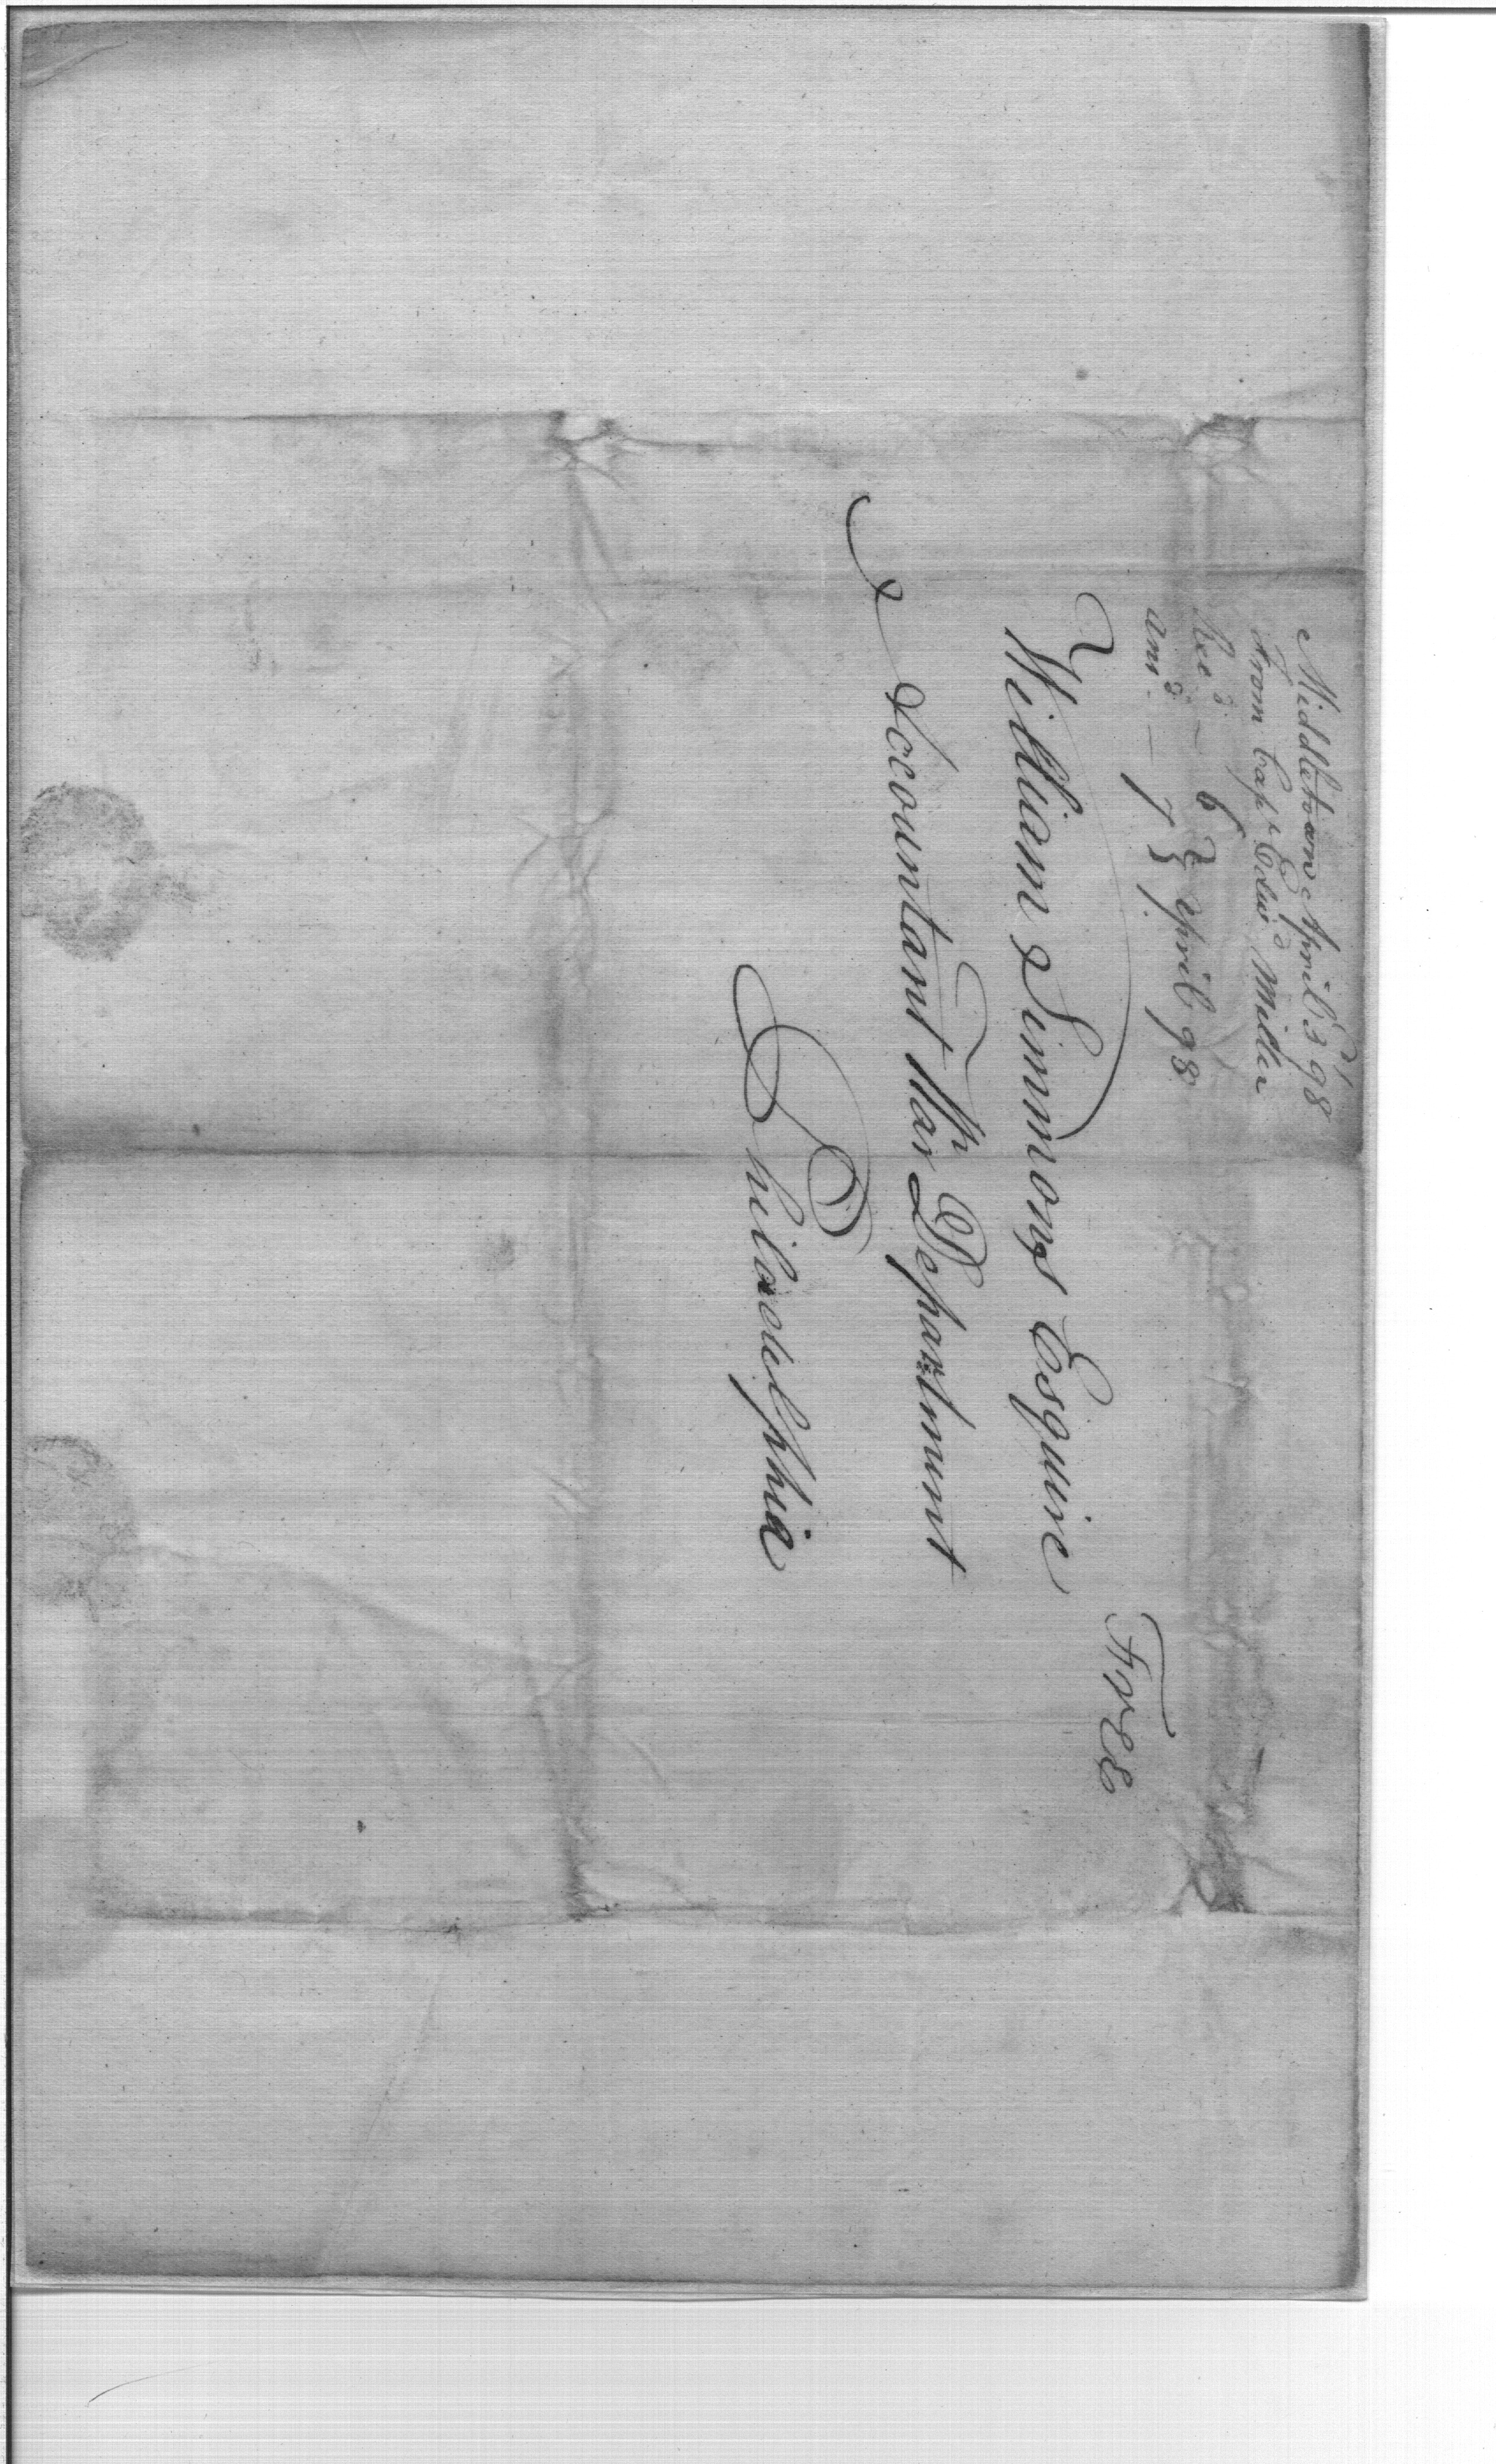 Middletown April 3d 98
From Capt Edwd Miller
Recd - 6 } April 98
ansd. - 7 }
Free
William Simmons Esquire
Accountant War Department
Philadelphia